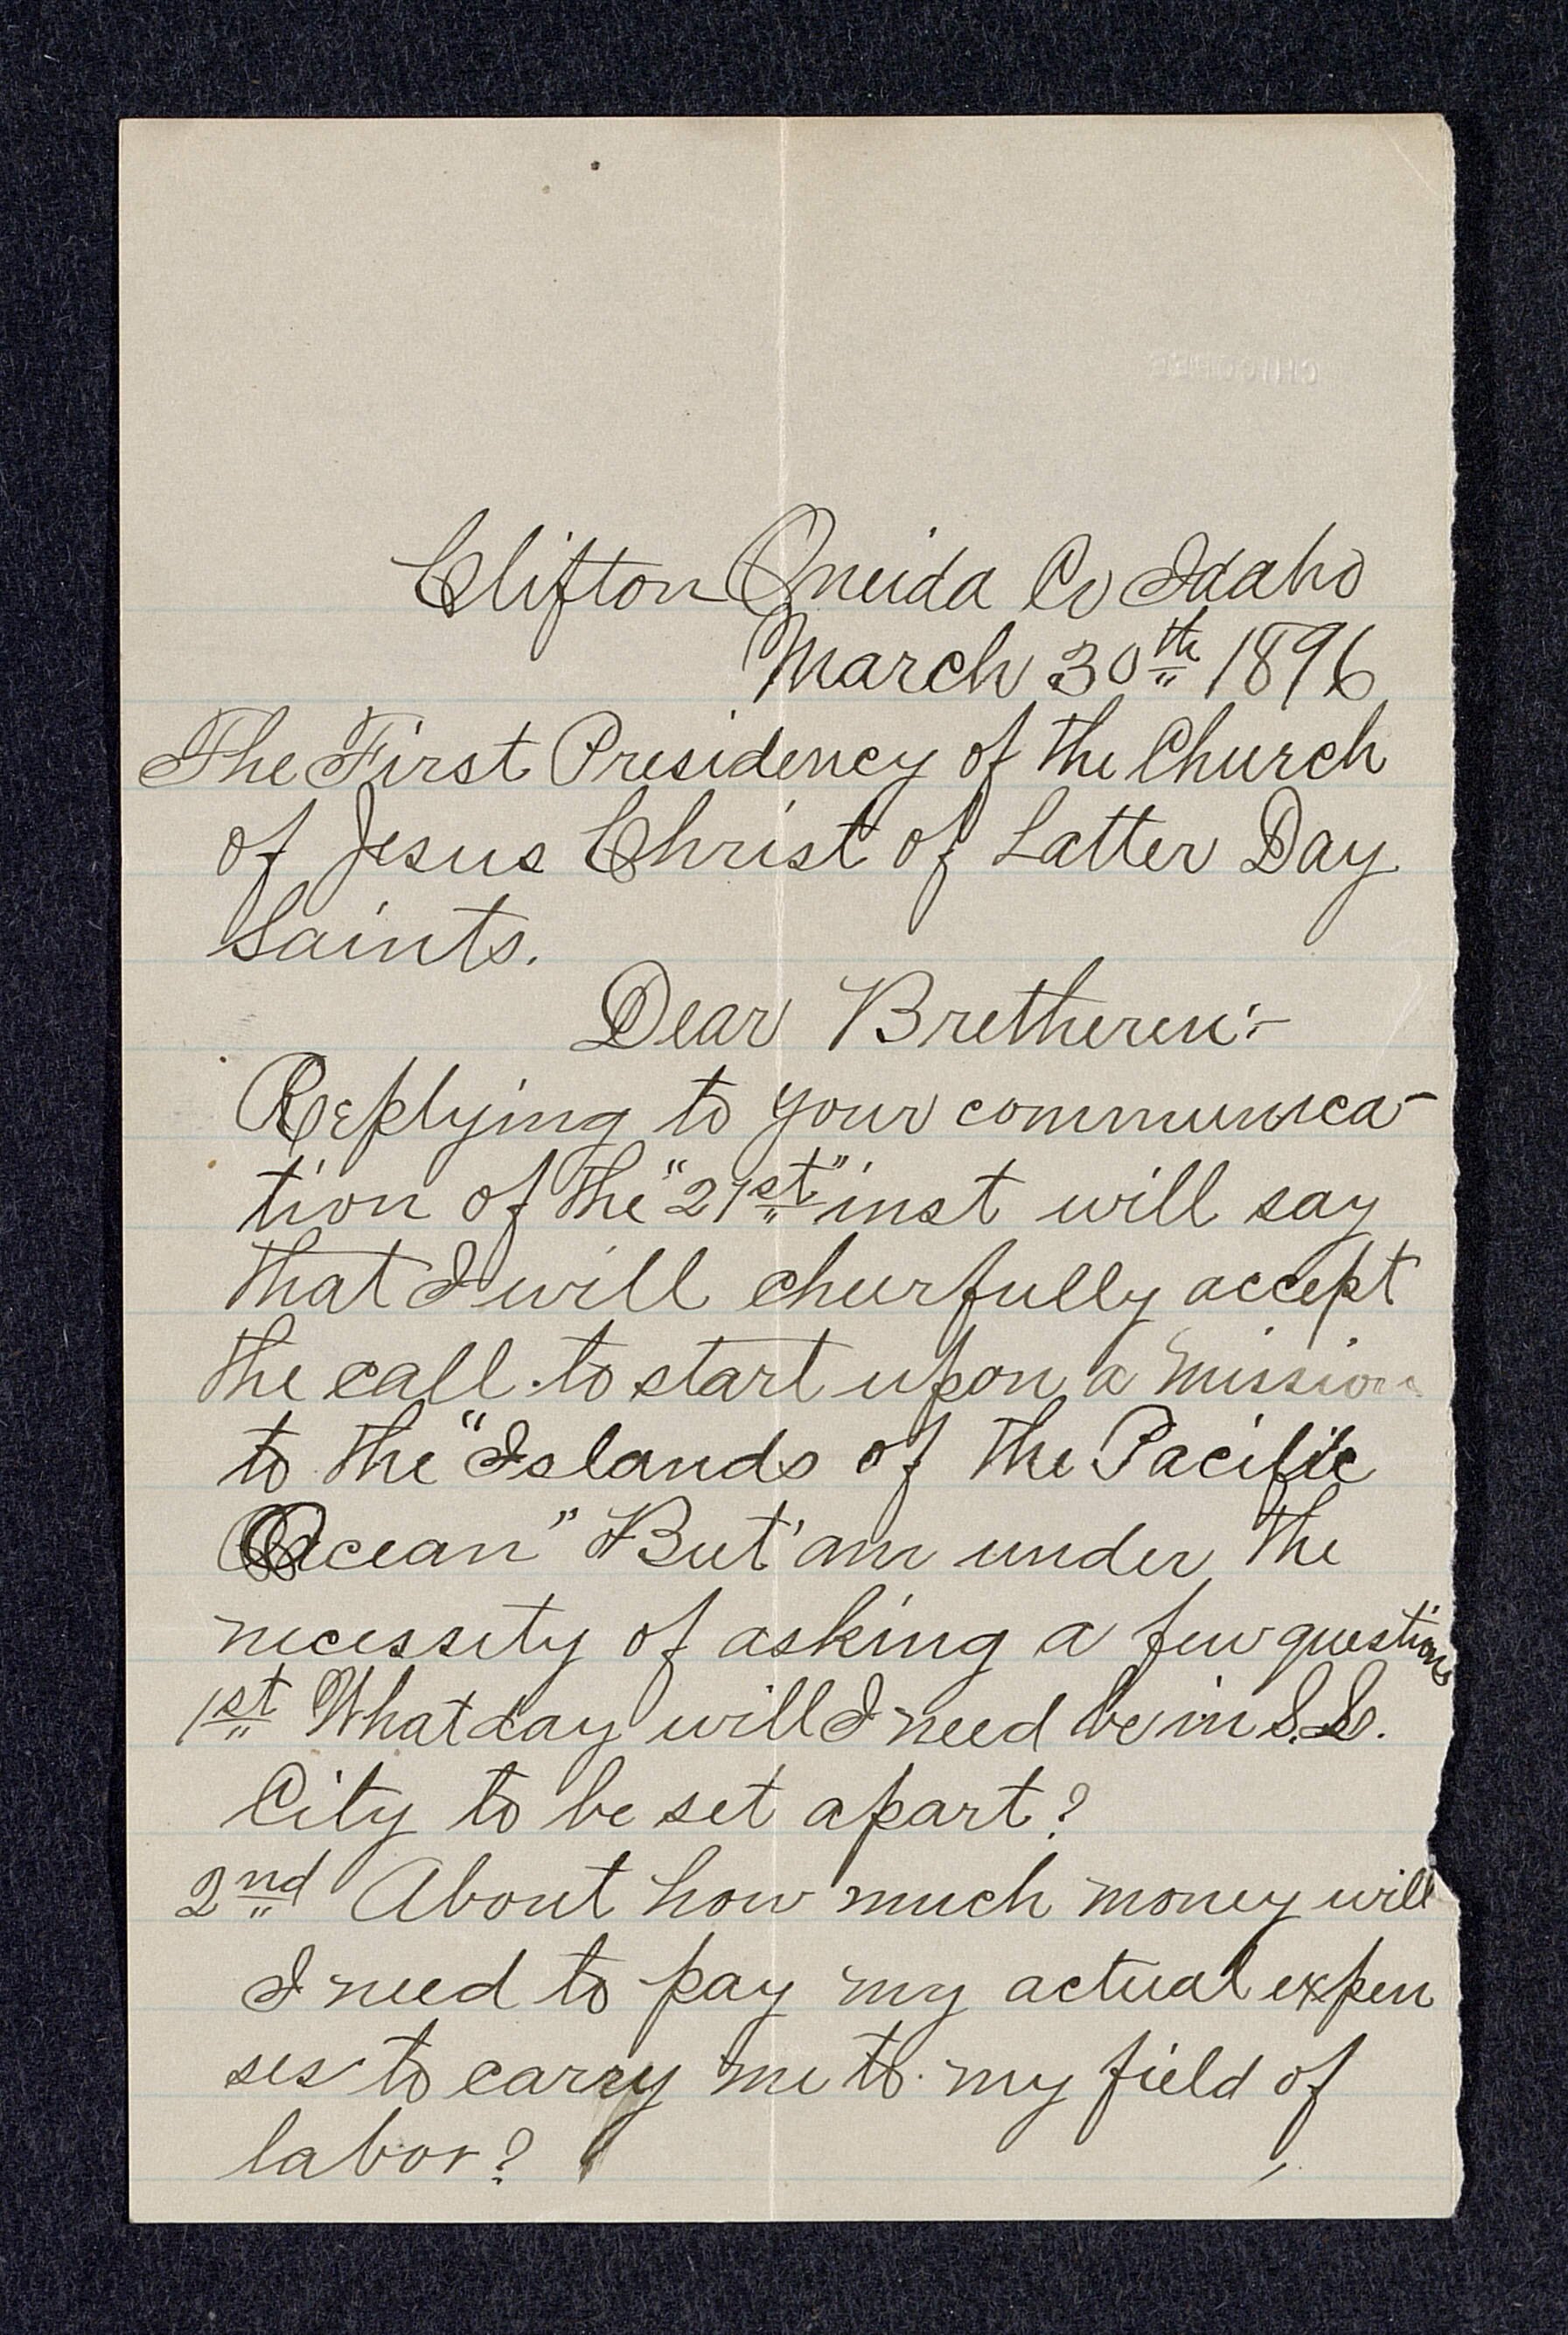 CHICOPEE
Clifton Oneida Co Idaho
March 30th 1896
The First Presidency of the Church
of Jesus Christ of Latter Day
Saints.
Dear Bretheren:-
Replying to your communica-
tion of the "21st" inst will say
that I will cheerfully accept
the call to start upon a mission
to the "Islands of the Pacific
Ocean" But am under the
necessity of asking a few questions
1st What day will I need be in S.L.
City to be set apart?
2nd About how much money will
I need to pay my actual expen
ses to carry me to my field of
labor?